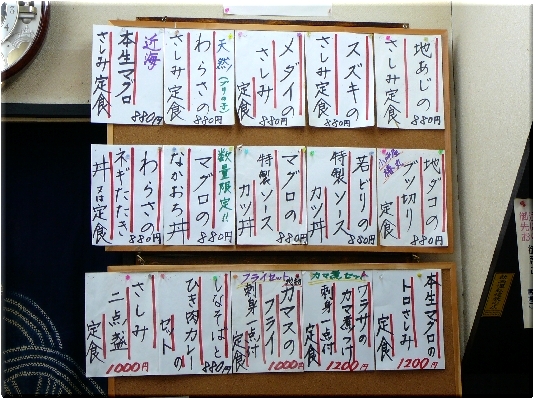 地あじの
さしみ定食
880円
スズキの
さしみ定食
880円
メダイの
さしみ
定食
880円
天然
わらさの
さしみ定食
880円
近海
本生マグロ
さしみ定食
880円
地ダコの
ブツ切り
定食
880円
若どりの
特製ソース
カツ丼
880円
マグロの
特製ソース
カツ丼
880円
数量限定!!
マグロの
なかおち丼
880円
わらさの
ネギたたき
丼又は定食
880円
本生マグロの
トロさしみ
定食
1200円
カマ煮セット
ワラサの
カマ煮つけ
刺身一点付
定食
1200円
フライセット
カマスの
フライ
刺身一点付
定食
1000円
しなそばと
ひき肉カレーの
セット
880円
さしみ
二点盛
定食
1000円